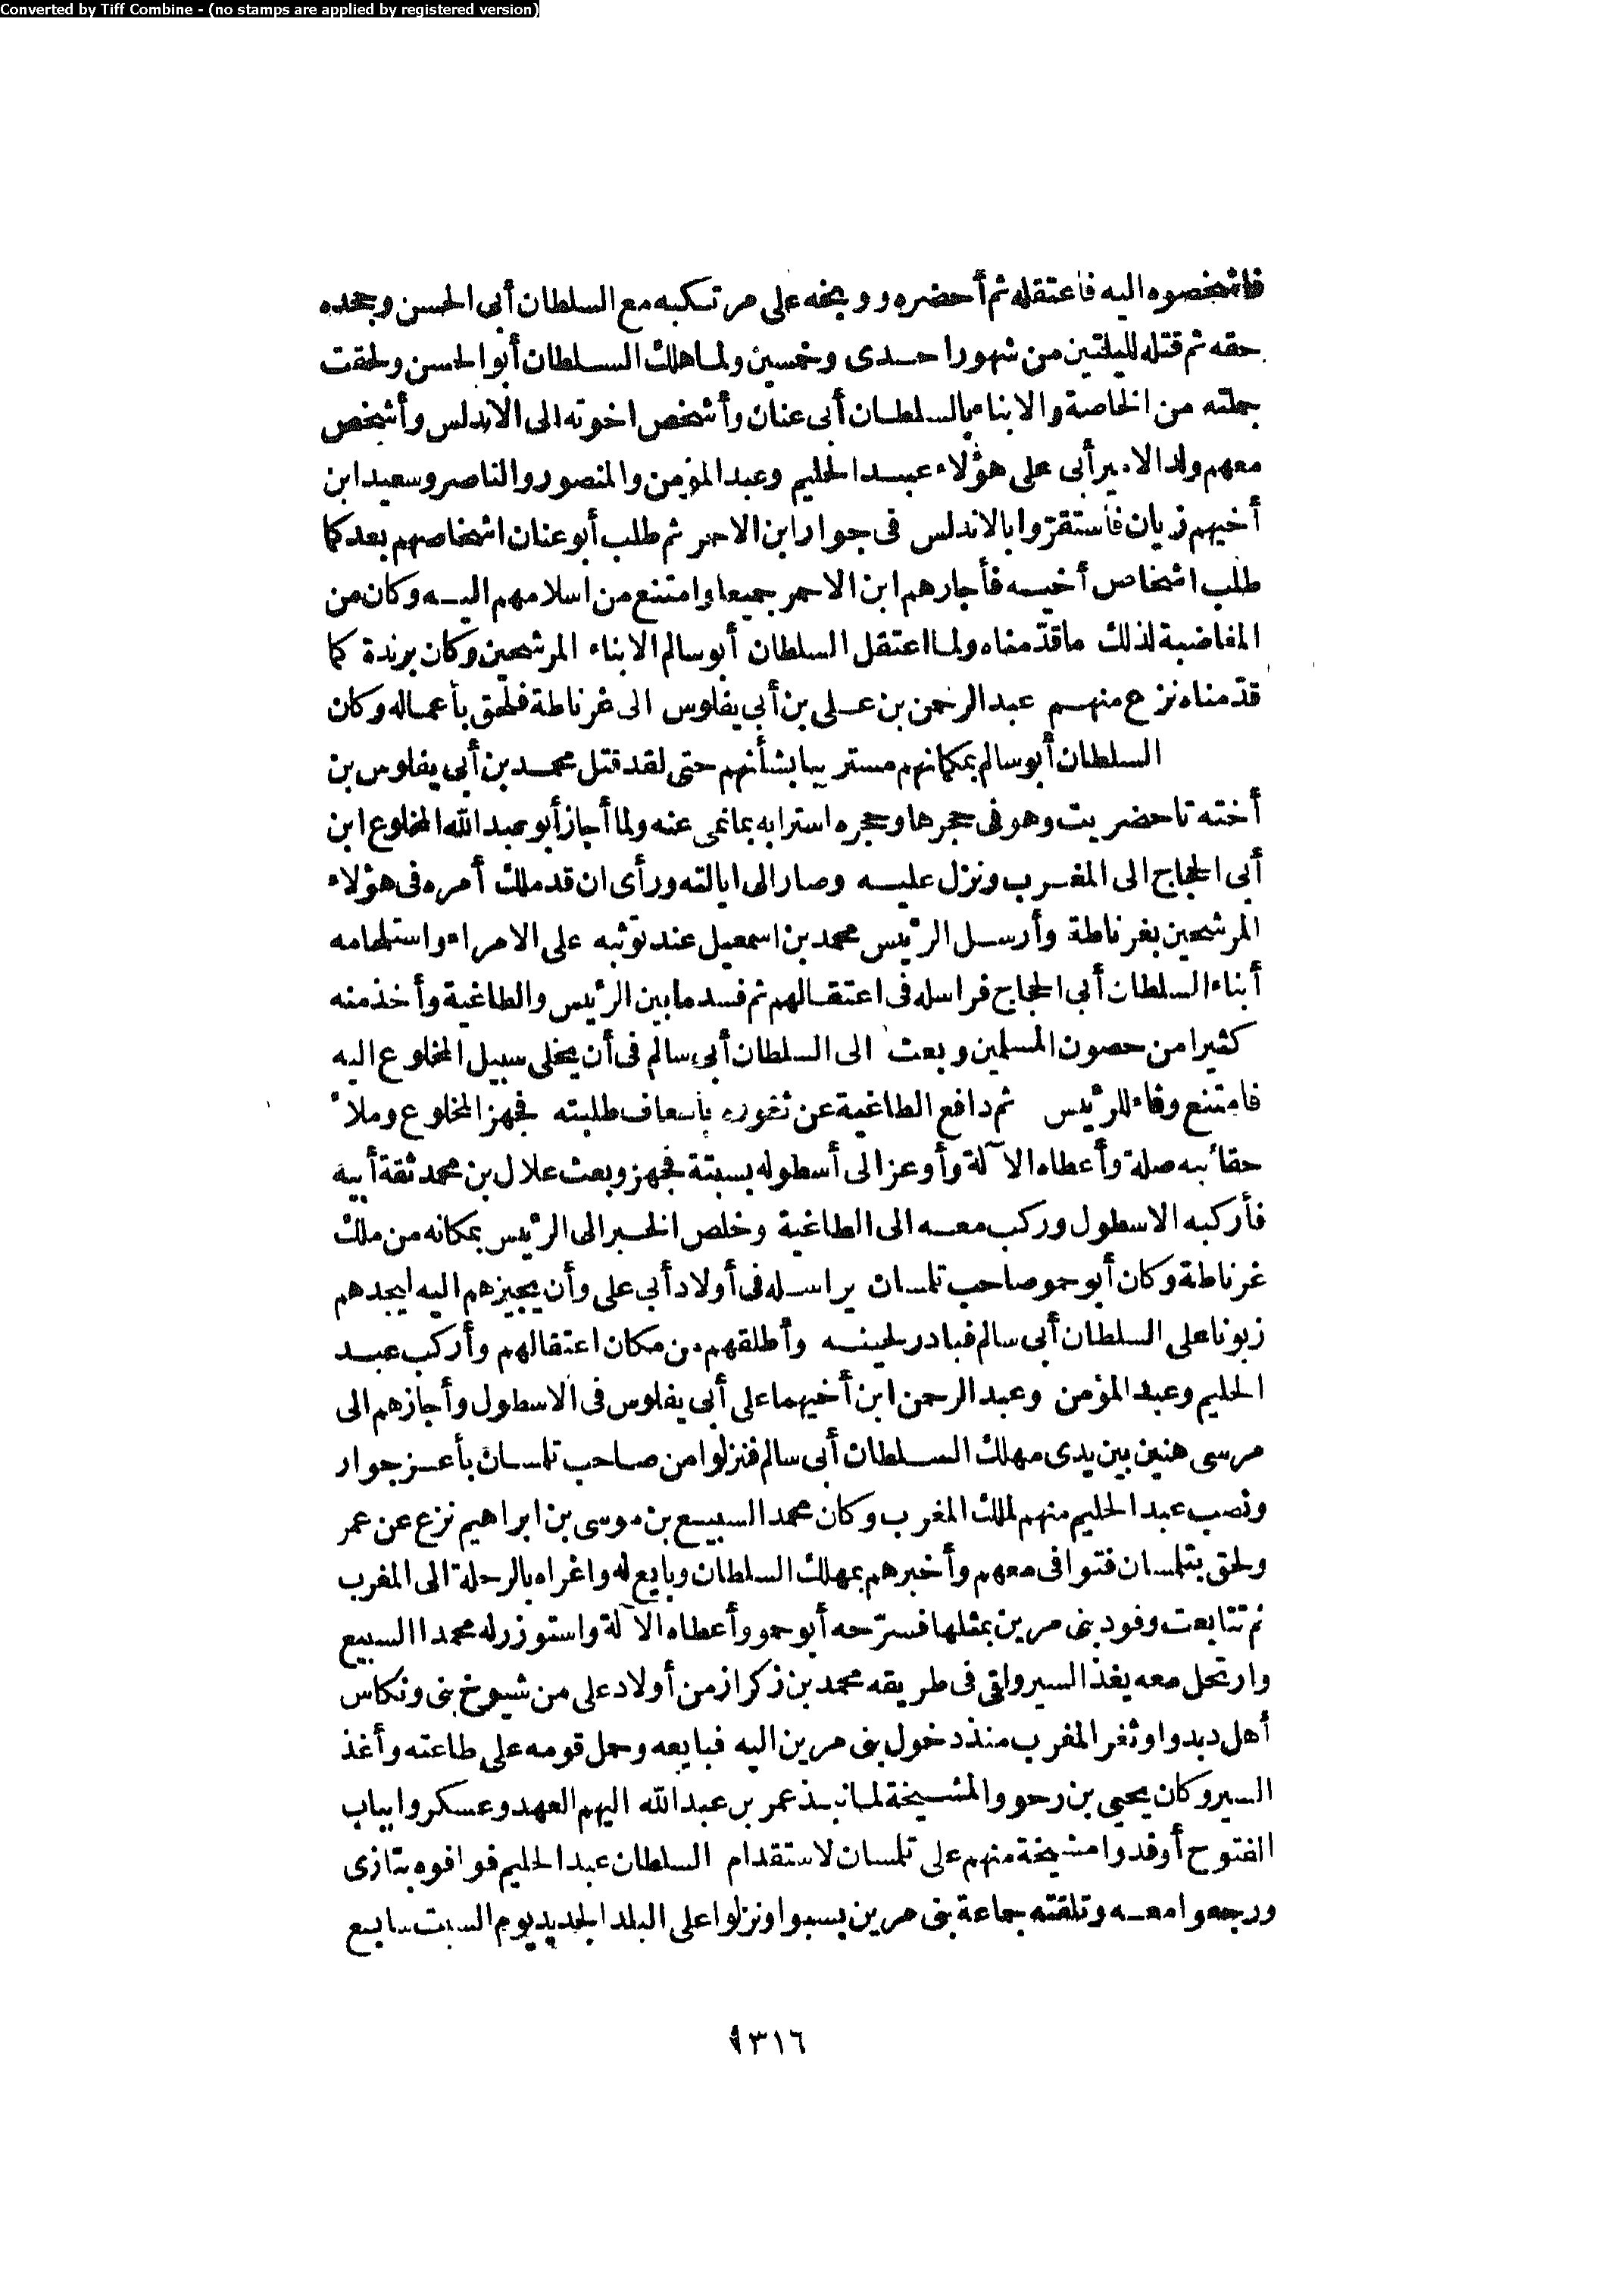 Converted by Tiff Combine - (no stamps are applied by registered version)
فاشخصوه اليه فاعتقله ثم أحضره ووبخه على مرتكبه مع السلطان أبى الحسن وجحده
حقه ثم قتله لليلتين من شهور احدى وخمسين ولما هلك السلطان أبو الحسن ولحقت
جملته من الخاصة والابناء بالسلطان أبى عنان وأشخص اخوته الى الاندلس وأشخص
معهم ولد الامير أبى على هؤلاء عبد الحليم وعبد المؤمن والمنصور والناصر وسعيد ابن
أخيهم زيان فاستقرّوا بالاندلس فى جوار ابن الاحمر ثم طلب أبو عنان اشخاصهم بعد كما
طلب اشخاص أخيه فأجارهم ابن الاحمر جميعا وامتنع من اسلامهم اليه وكان من
المغاضبة لذلك ما قدّمناه ولما اعتقل السلطان أبو سالم الابناء المرشحين وكان برندة كما
قدّمناه نزع منهم عبد الرحمن بن على بن أبي يفلوس الى غرناطة فلحق بأعماله وكان
السلطان أبو سالم بمكانهم مستريبا بشأنهم حتى لقد قتل محمد بن أبي يفلوس بن
أخته تاحضريت وهو فى حجرها وحجره استرابه بما نمى عنه ولما أجاز أبو عبد الله المخلوع ابن
أبي الحجاج الى المغرب ونزل عليه وصار الى ايالته ورأى ان قد ملك أمره فى هؤلاء
المرشحين بغرناطة وأرسل الرئيس محمد بن اسمعيل عند توثبه على الامراء واستلحامه
أبناء السلطان أبى الحجاج فراسله فى اعتقالهم ثم فسد ما بين الرئيس والطاغية وأخذ منه
كثيرا من حصون المسلمين وبعث الى السلطان أبي سالم فى أن يخلى سبيل المخلوع اليه
فامتنع وفاء للرئيس ثم دافع الطاغية عن ثغوره بأسعاف طلبته فجهز المخلوع وملأ
حقائبه صلة وأعطاه الآلة وأوعز الى أسطوله بسبتة فجهز وبعث علال بن محمد ثقة أبيه
فأركبه الاسطول وركب معه الى الطاغية وخلص الخبر الى الرئيس بمكانه من ملك
غرناطة وكان أبو حمو صاحب تلمسان يراسله فى أولاد أبي على وأن يجيزهم اليه ليجدهم
زبونا على السلطان أبى سالم فبادر لحينه وأطلقهم من مكان اعتقالهم وأركب عبد
الحليم وعبد المؤمن وعبد الرحمن ابن أخيهما على أبى يفلوس فى الاسطول وأجازهم الى
مرسى هنين بين يدى مهلك السلطان أبى سالم فنزلوا من صاحب تلمسان بأعز جوار
ونصب عبد الحليم منهم لملك المغرب وكان محمد السبيع بن موسى بن ابراهيم نزع عن عمر
ولحق بتلمسان فتوافى معهم وأخبرهم بمهلك السلطان وبايع له واغراه بالرحلة الى المغرب
ثم تتابعت وفود بنى مرين بمثلها فسرّحه أبو حمو وأعطاه الآلة واستوزر له محمدا السبيع
وارتحل معه يغذ السير ولقى فى طريقه محمد بن زكراز من أولاد على من شيوخ بنى ونكاس
أهل دبدو او ثغر المغرب منذ دخول بنى مرين اليه فبايعه وحمل قومه على طاعته وأغذ
السير وكان يحيى بن رحو والمشيخة لما نبذ عمر بن عبد الله اليهم العهد وعسكروا بباب
الفتوح أوفدوا مشيخة منهم على تلمسان لاستقدام السلطان عبد الحليم فوافوه بتازى
ورجعوا معه وتلقته جماعة بنى مرين بسبوا ونزلوا على البلد الجديد يوم السبت سابع
٩٣١٦